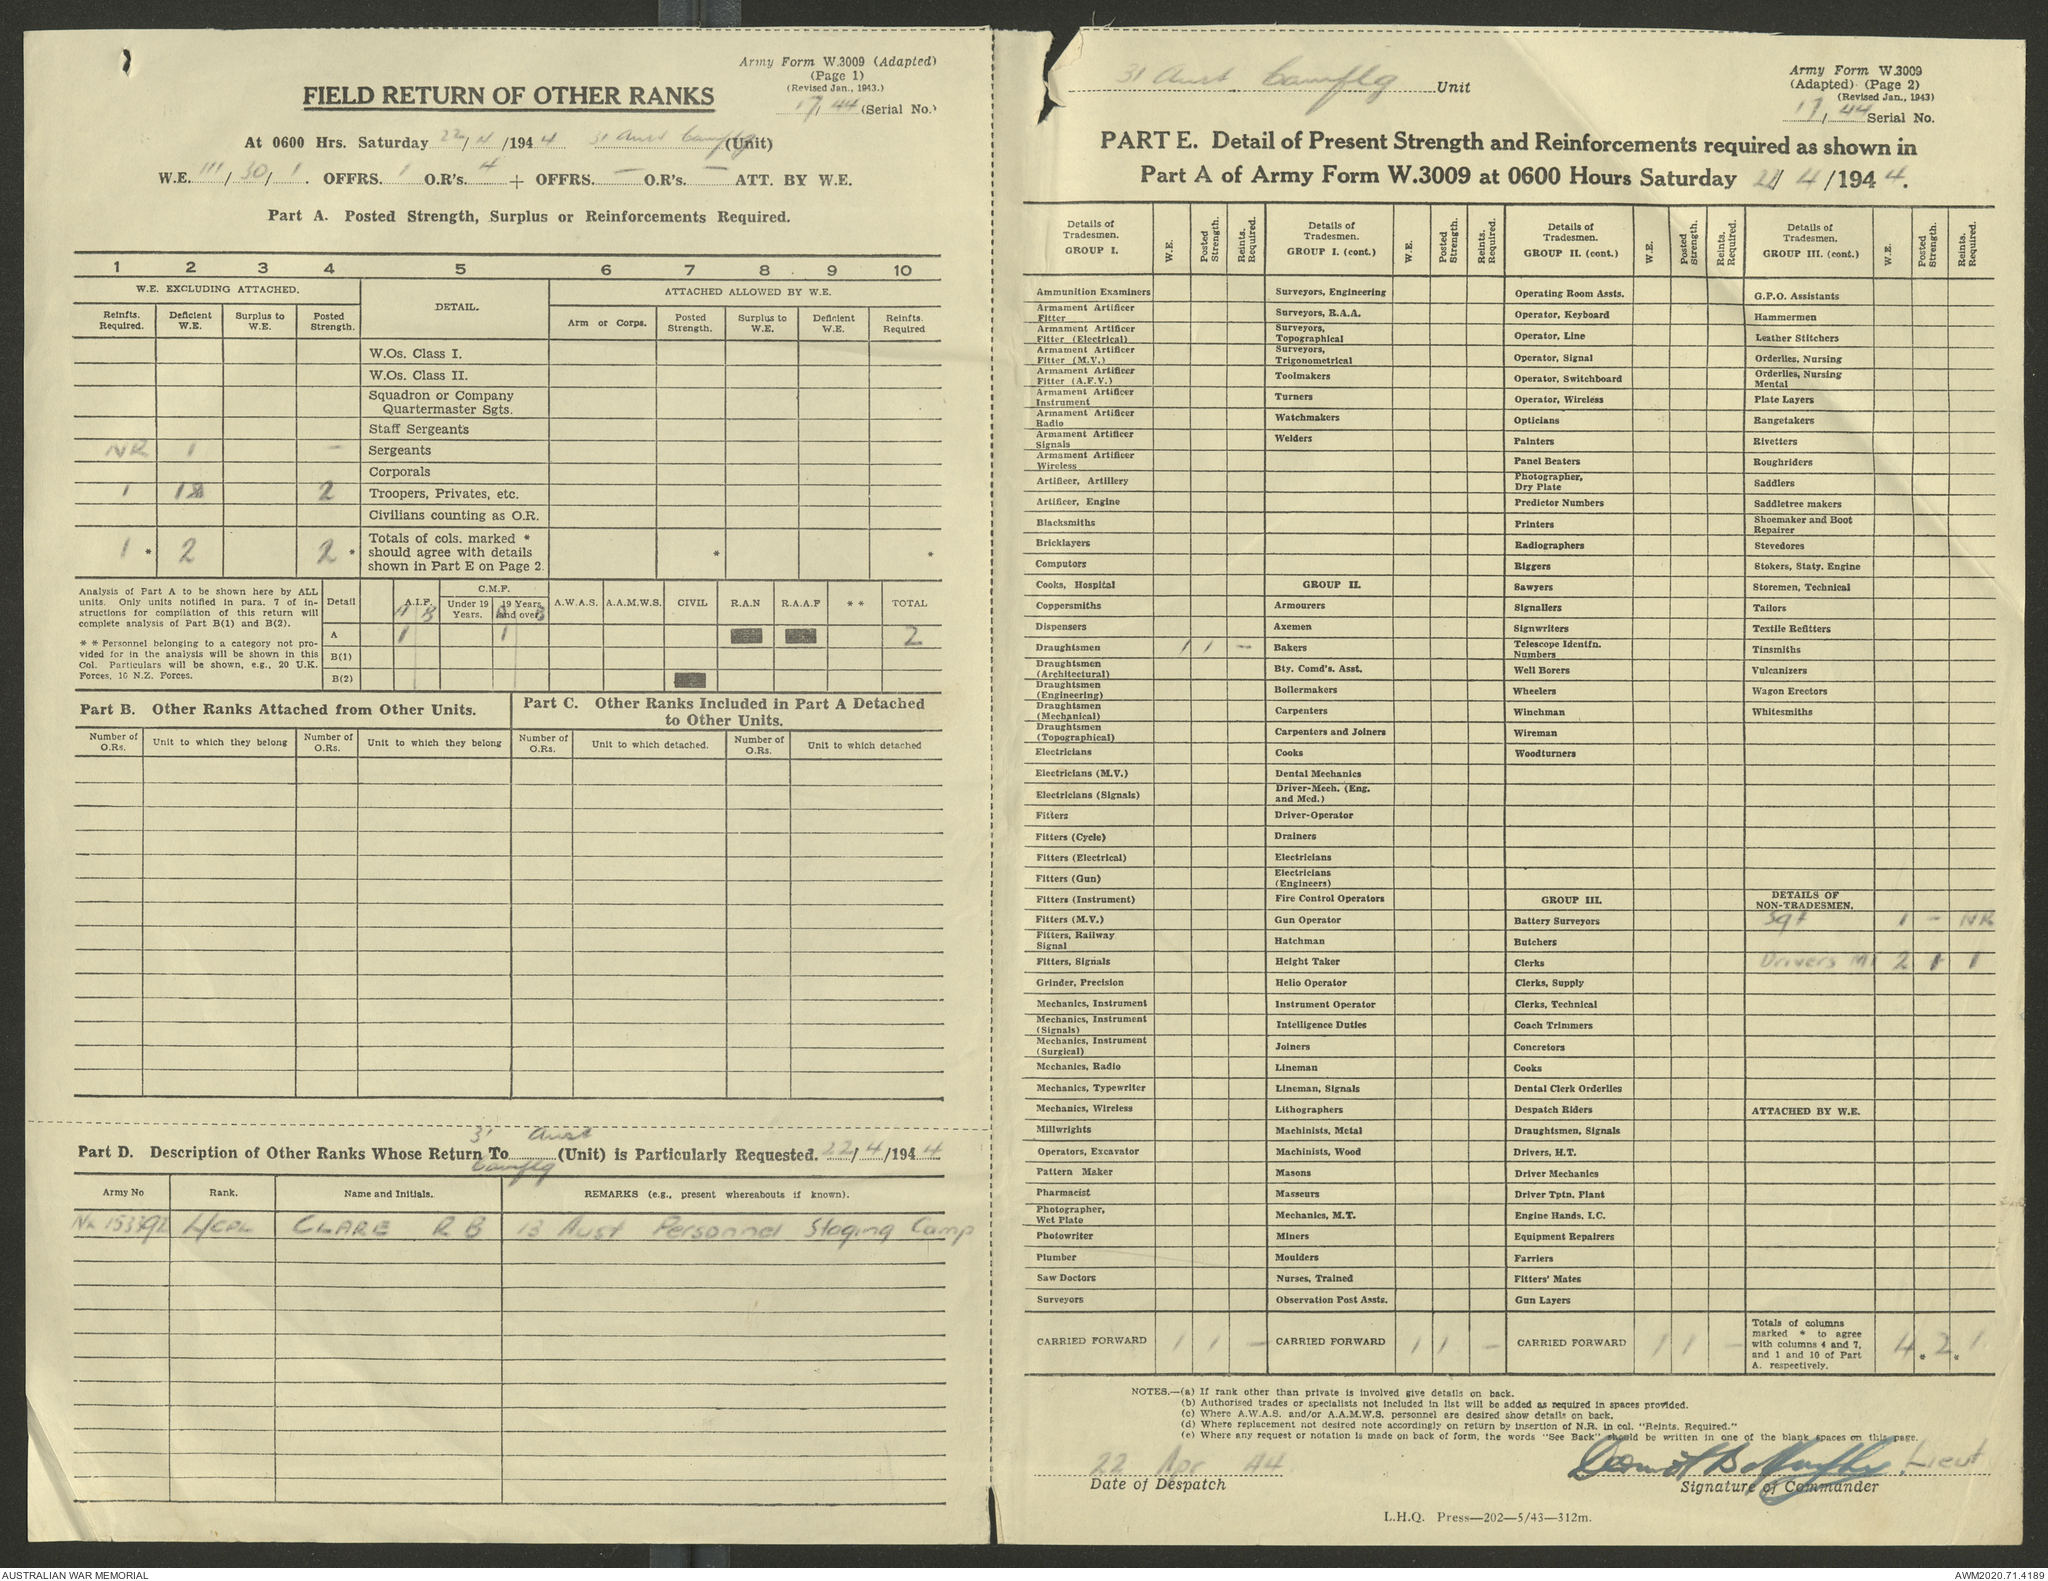 Army Form W.3009 (Adapted)
(Page 1)
(Revised Jan., 1943.)
17/44 (Serial No.)
FIELD RETURN OF OTHER RANKS
At 0600 Hrs. Saturday 22/4/1944 31 Aust Camflg (Unit)
W.E. 111/30/1. OFFRS. 1 O.R's. 4 + OFFRS. — O.R's. — ATT. BY W.E.
Part A. Posted Strength, Surplus or Reinforcements Required.
1 2 3 4 5 6 7 8 9 10
W.E. EXCLUDING ATTACHED. DETAIL. ATTACHED ALLOWED BY W.E.
Reinfts. Required. Deficient W.E. Surplus to W.E. Posted Strength. Arm or Corps. Posted Strength. Surplus to W.E. Deficient W.E. Reinfts. Required
W.Os. Class I.
W.Os. Class II.
Squadron or Company
Quartermaster Sgts.
Staff Sergeants
NR 1 — Sergeants
Corporals
1 1 2 Troopers, Privates, etc.
Civilians counting as O.R.
1 * 2 2 * Totals of cols. marked * * *
should agree with details
shown in Part E on Page 2.
Analysis of Part A to be shown here by ALL
units. Only units notified in para. 7 of in-
structions for compilation of this return will
complete analysis of Part B(1) and B(2).
* * Personnel belonging to a category not pro-
vided for in the analysis will be shown in this
Col. Particulars will be shown, e.g., 20 U.K.
Forces, 10 N.Z. Forces.
Detail A.I.F. C.M.F. Under 19 Years. 19 Years and over A.W.A.S. A.A.M.W.S. CIVIL R.A.N R.A.A.F * * TOTAL
A B A B
A 1 1 2
B(1)
B(2)
Part B. Other Ranks Attached from Other Units.
Number of O.Rs. Unit to which they belong Number of O.Rs. Unit to which they belong
Part C. Other Ranks Included in Part A Detached
to Other Units.
Number of O.Rs. Unit to which detached. Number of O.Rs. Unit to which detached
Part D. Description of Other Ranks Whose Return To 31 Aust Camflg (Unit) is Particularly Requested. 22/4/1944
Army No Rank. Name and Initials. REMARKS (e.g., present whereabouts if known).
NX153392 L/CPL CLARE R B 13 Aust Personnel Staging Camp
31 Aust Camflg Unit
Army Form W.3009
(Adapted) (Page 2)
(Revised Jan., 1943)
17/44 Serial No.
PART E. Detail of Present Strength and Reinforcements required as shown in
Part A of Army Form W.3009 at 0600 Hours Saturday 22/4/1944.
Details of Tradesmen. GROUP I. W.E. Posted Strength. Reints. Required.
Ammunition Examiners
Armament Artificer Fitter
Armament Artificer Fitter (Electrical)
Armament Artificer Fitter (M.V.)
Armament Artificer Fitter (A.F.V.)
Armament Artificer Instrument
Armament Artificer Radio
Armament Artificer Signals
Armament Artificer Wireless
Artificer, Artillery
Artificer, Engine
Blacksmiths
Bricklayers
Computors
Cooks, Hospital
Coppersmiths
Dispensers
Draughtsmen 1 1 —
Draughtsmen (Architectural)
Draughtsmen (Engineering)
Draughtsmen (Mechanical)
Draughtsmen (Topographical)
Electricians
Electricians (M.V.)
Electricians (Signals)
Fitters
Fitters (Cycle)
Fitters (Electrical)
Fitters (Gun)
Fitters (Instrument)
Fitters (M.V.)
Fitters, Railway Signal
Fitters, Signals
Grinder, Precision
Mechanics, Instrument
Mechanics, Instrument (Signals)
Mechanics, Instrument (Surgical)
Mechanics, Radio
Mechanics, Typewriter
Mechanics, Wireless
Millwrights
Operators, Excavator
Pattern Maker
Pharmacist
Photographer, Wet Plate
Photowriter
Plumber
Saw Doctors
Surveyors
CARRIED FORWARD 1 1 —
Details of Tradesmen. GROUP I. (cont.) W.E. Posted Strength. Reints. Required.
Surveyors, Engineering
Surveyors, R.A.A.
Surveyors, Topographical
Surveyors, Trigonometrical
Toolmakers
Turners
Watchmakers
Welders
GROUP II.
Armourers
Axemen
Bakers
Bty. Comd's. Asst.
Boilermakers
Carpenters
Carpenters and Joiners
Cooks
Dental Mechanics
Driver-Mech. (Eng. and Med.)
Driver-Operator
Drainers
Electricians
Electricians (Engineers)
Fire Control Operators
Gun Operator
Hatchman
Height Taker
Helio Operator
Instrument Operator
Intelligence Duties
Joiners
Lineman
Lineman, Signals
Lithographers
Machinists, Metal
Machinists, Wood
Masons
Masseurs
Mechanics, M.T.
Miners
Moulders
Nurses, Trained
Observation Post Assts.
CARRIED FORWARD 1 1 —
Details of Tradesmen. GROUP II. (cont.) W.E. Posted Strength. Reints. Required.
Operating Room Assts.
Operator, Keyboard
Operator, Line
Operator, Signal
Operator, Switchboard
Operator, Wireless
Opticians
Painters
Panel Beaters
Photographer, Dry Plate
Predictor Numbers
Printers
Radiographers
Riggers
Sawyers
Signallers
Signwriters
Telescope Identfn. Numbers
Well Borers
Wheelers
Winchman
Wireman
Woodturners
GROUP III.
Battery Surveyors
Butchers
Clerks
Clerks, Supply
Clerks, Technical
Coach Trimmers
Concretors
Cooks
Dental Clerk Orderlies
Despatch Riders
Draughtsmen, Signals
Drivers, H.T.
Driver Mechanics
Driver Tptn. Plant
Engine Hands, I.C.
Equipment Repairers
Farriers
Fitters' Mates
Gun Layers
CARRIED FORWARD 1 1 —
Details of Tradesmen. GROUP III. (cont.) W.E. Posted Strength. Reints. Required.
G.P.O. Assistants
Hammermen
Leather Stitchers
Orderlies, Nursing
Orderlies, Nursing Mental
Plate Layers
Rangetakers
Rivetters
Roughriders
Saddlers
Saddletree makers
Shoemaker and Boot Repairer
Stevedores
Stokers, Staty. Engine
Storemen, Technical
Tailors
Textile Refitters
Tinsmiths
Vulcanizers
Wagon Erectors
Whitesmiths
DETAILS OF NON-TRADESMEN.
Sgt 1 — NR
Drivers MT 2 1 1
ATTACHED BY W.E.
Totals of columns marked * to agree with columns 4 and 7, and 1 and 10 of Part A. respectively. 4 * 2 * 1
NOTES.—(a) If rank other than private is involved give details on back.
(b) Authorised trades or specialists not included in list will be added as required in spaces provided.
(c) Where A.W.A.S. and/or A.A.M.W.S. personnel are desired show details on back.
(d) Where replacement not desired note accordingly on return by insertion of N.R. in col. "Reints. Required."
(e) Where any request or notation is made on back of form, the words "See Back" should be written in one of the blank spaces on this page.
22 Apr 44
Date of Despatch
Lieut
Signature of Commander
L.H.Q. Press—202—5/43—312m.
AUSTRALIAN WAR MEMORIAL
AWM2020.71.4189